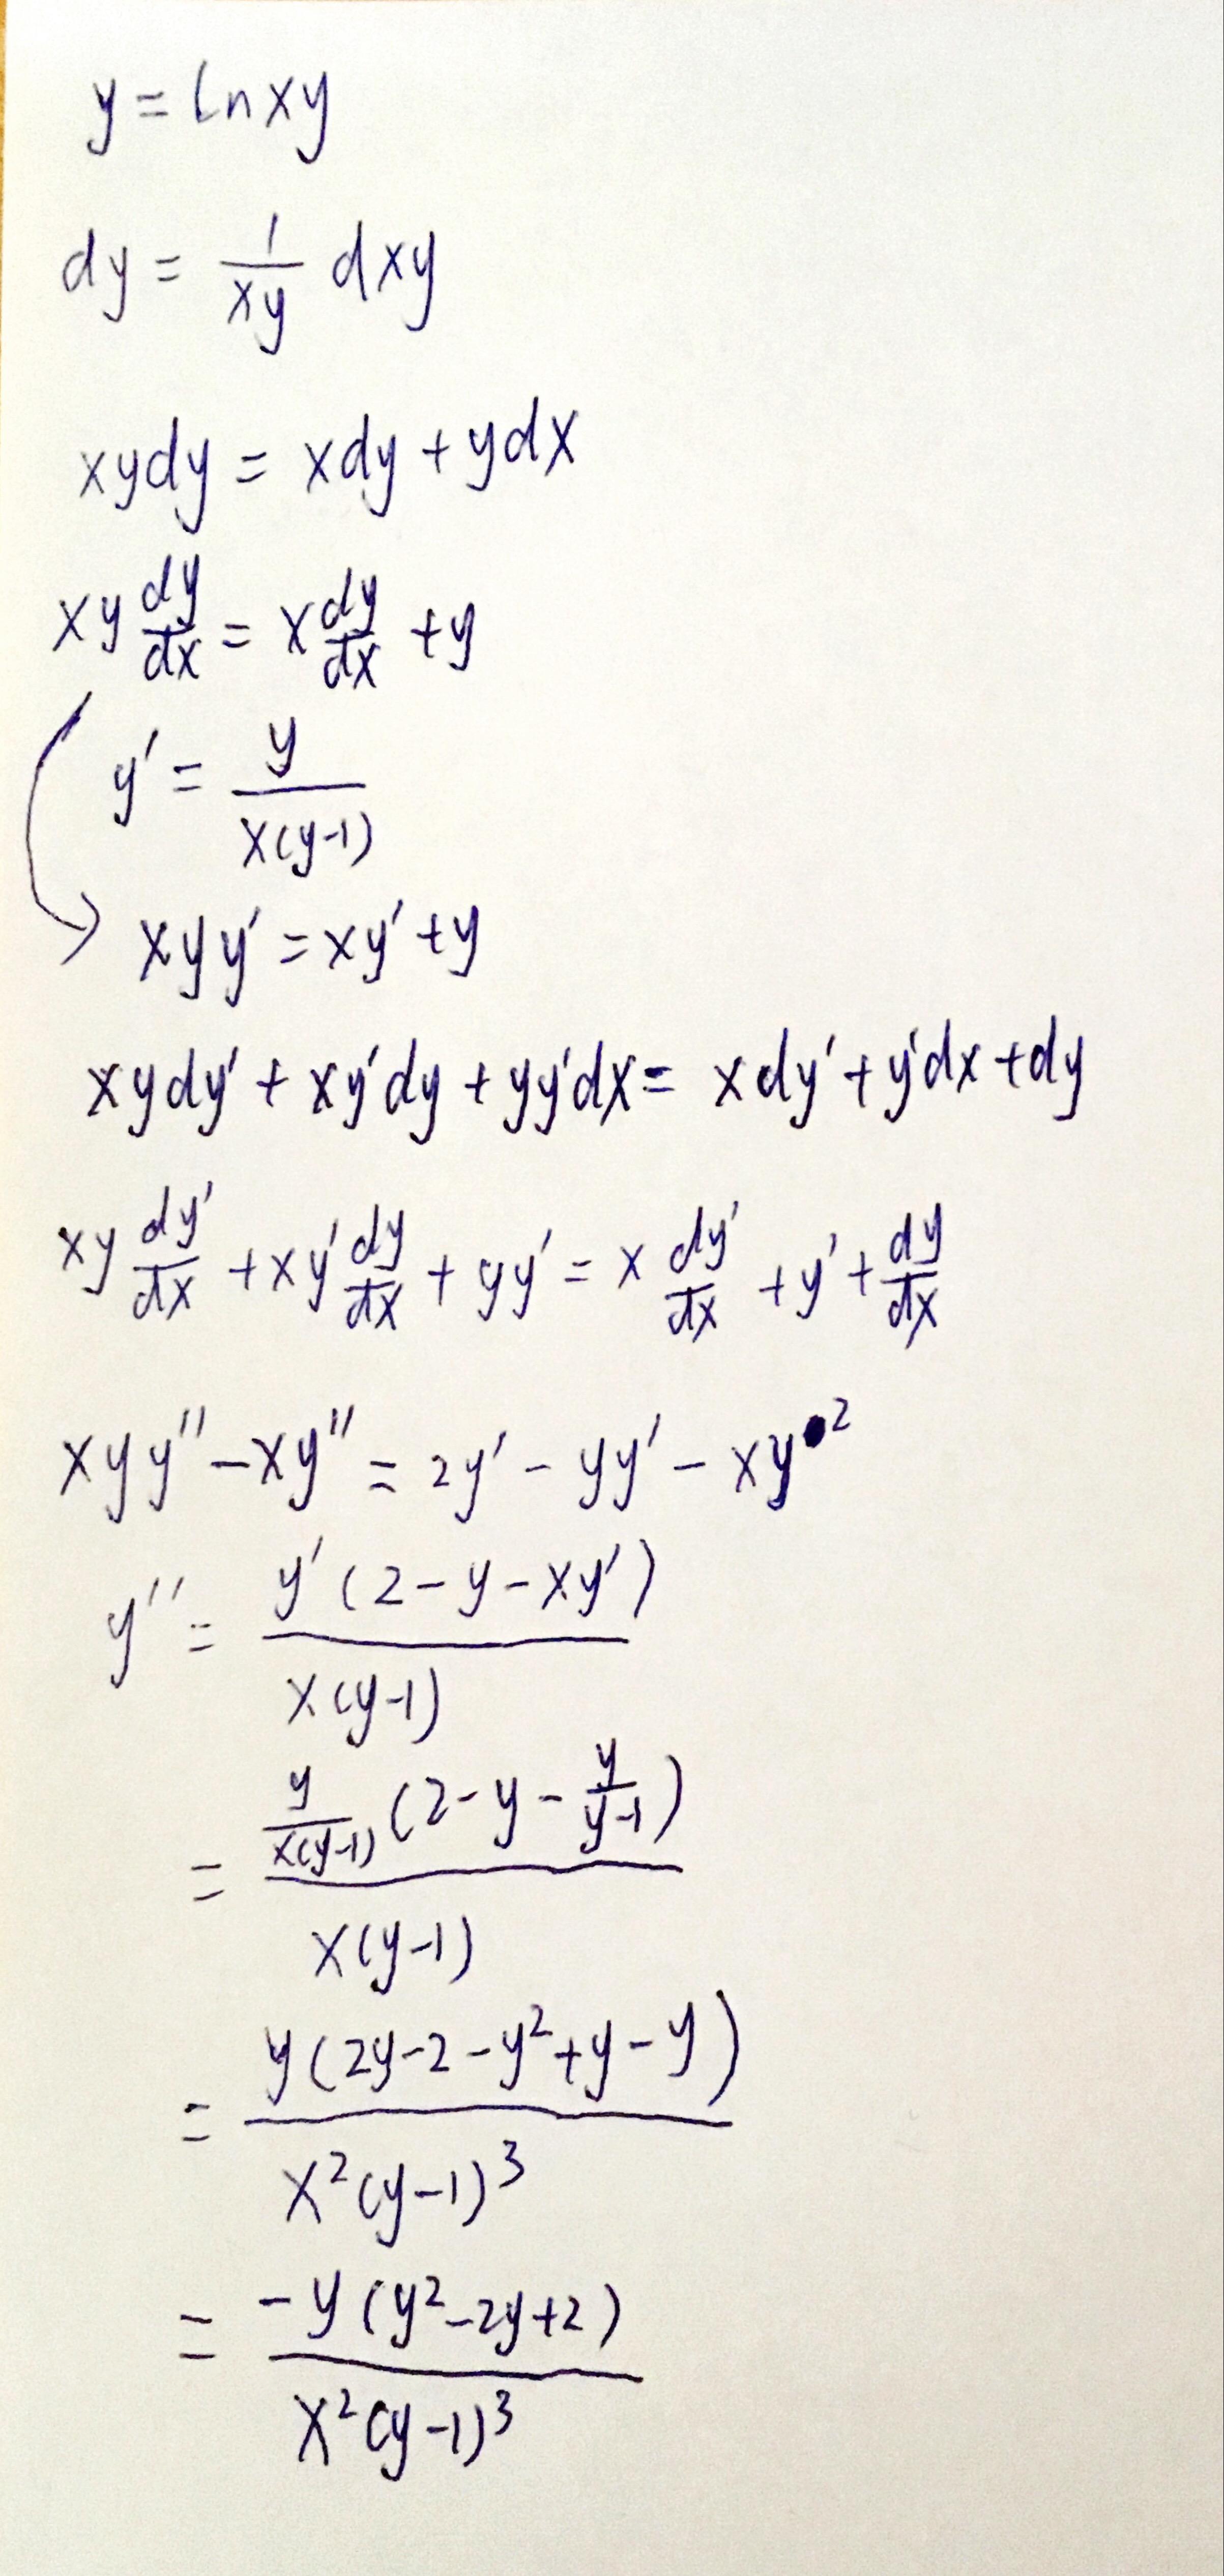 y = ln xy
dy = 1/xy dxy
xydy = xdy + ydx
xy dy/dx = x dy/dx + y
y' = y/x(y-1)
xyy' = xy' + y
xydy' + xy'dy + yy'dx = xdy' + y'dx + dy
xy dy'/dx + xy' dy/dx + yy' = x dy'/dx + y' + dy/dx
xyy'' - xy'' = 2y' - yy' - xy•²
y'' = y'(2 - y - xy')/x(y-1)
= y/x(y-1) (2 - y - y/y-1)/x(y-1)
= y(2y - 2 - y² + y - y)/x²(y-1)³
= -y(y² - 2y + 2)/x²(y-1)³